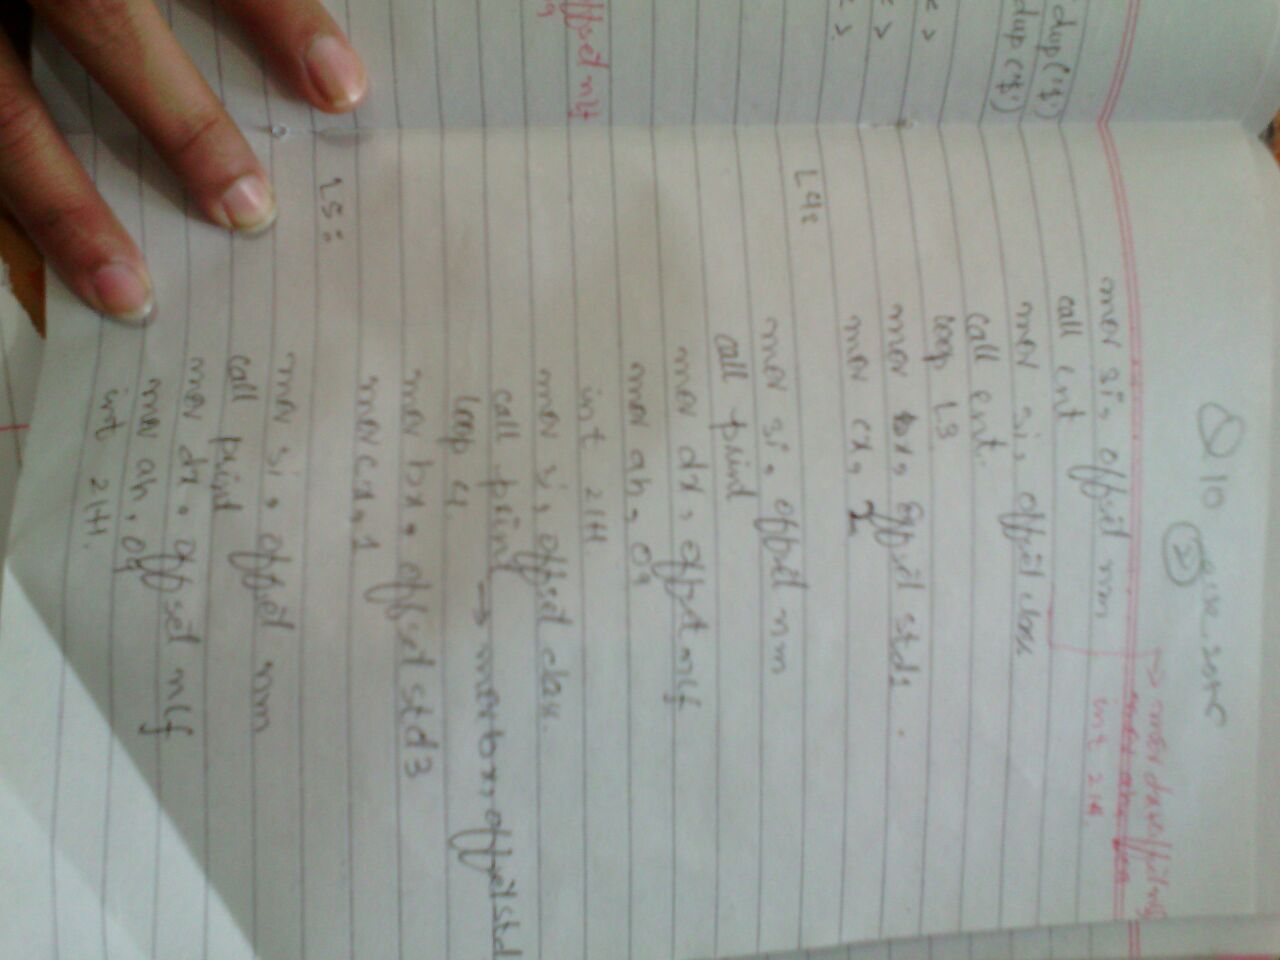 dup('$')
dup('$')
offset nlf
09
Q10
2
mov si, offset nm
int 21H.
call ent
mov si, offset class
call ent.
loop L3
mov bx, offset std1.
mov cx, 2
L4:
mov si, offset nm
call print
mov dx, offset nlf
mov ah, 09
int 21H
mov si, offset class.
call print → mov bx, offset std
loop 4.
mov bx, offset std3
mov cx, 1
L5:
mov si, offset nm
call print
mov dx, offset nlf
mov ah, 09
int 21H.